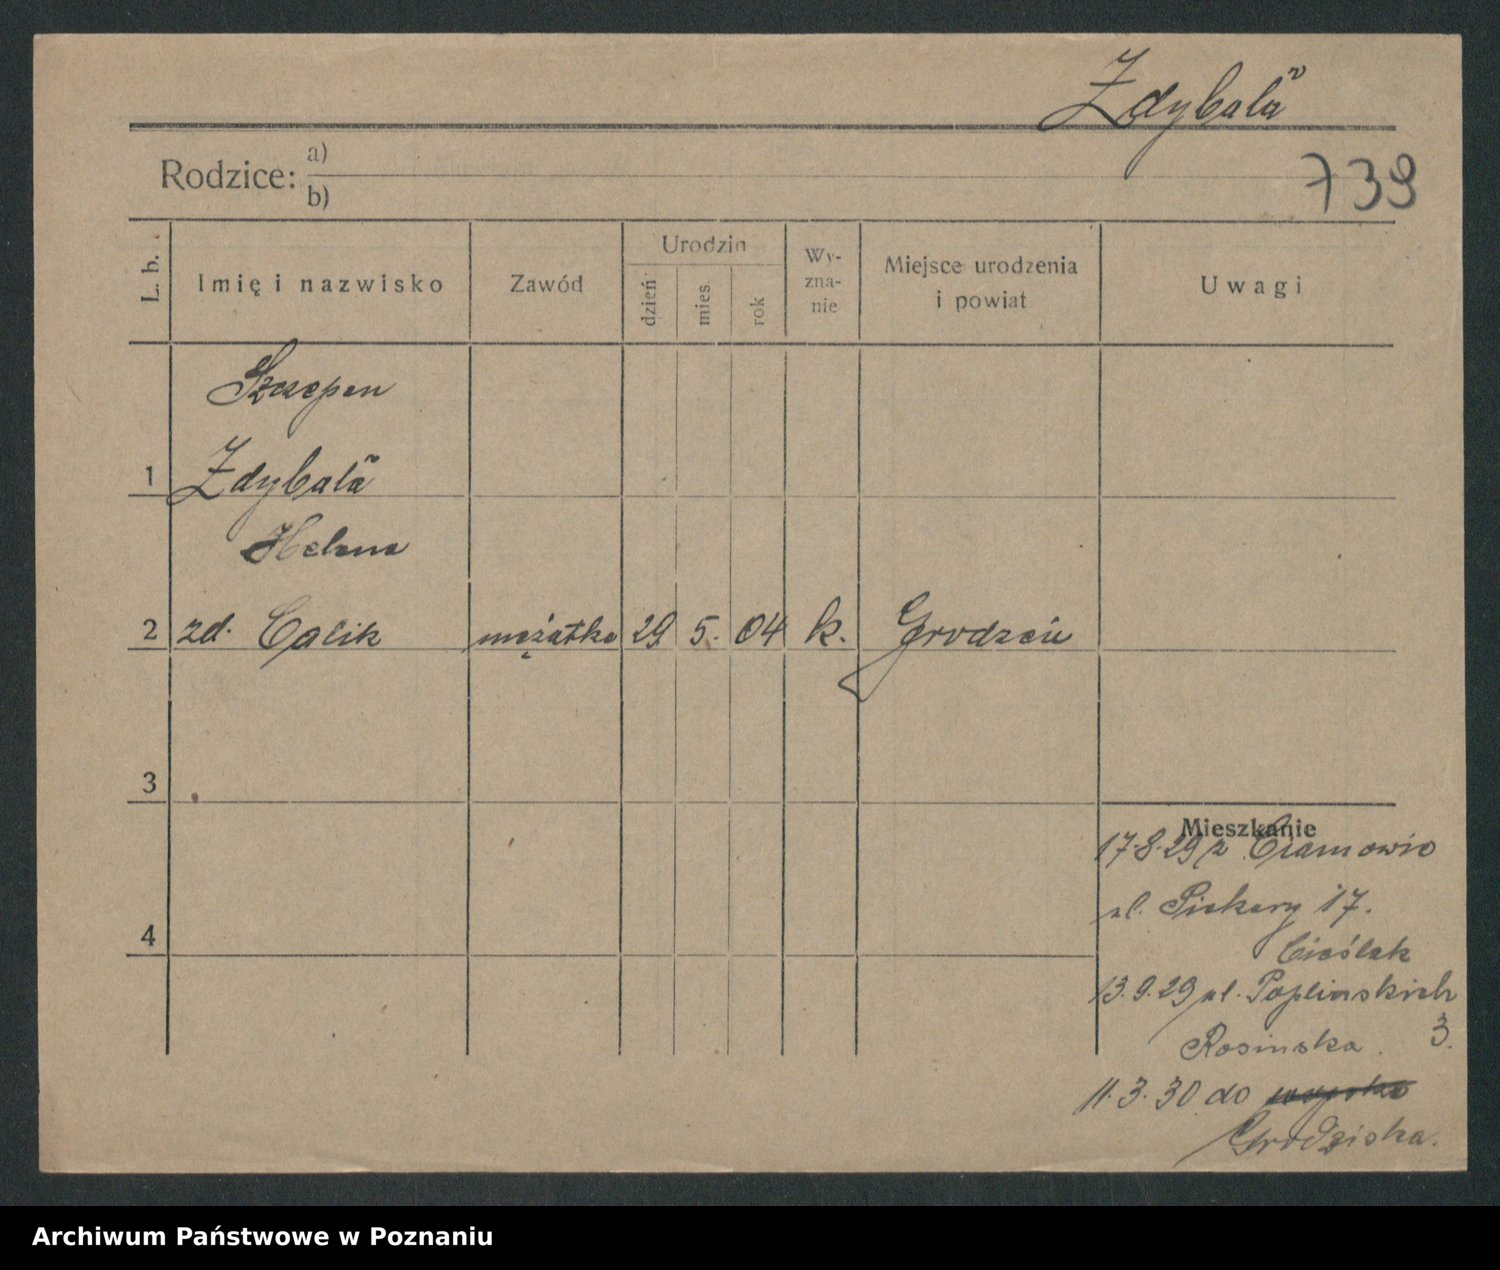 Zdybała
Rodzice: a)
b)
739
L. b.
Imię i nazwisko
Zawód
Urodzin
dzień
mies.
rok
Wy-
zna-
nie
Miejsce urodzenia
i powiat
Uwagi
Szczepan
1 Zdybała
Helena
2 zd. Calik mężatka 29. 5. 04 k. Grodzcu
3
Mieszkanie
17.8.29 z
ul. Piekary 17.
4
Cieślak
13.9.29 ul. Poplinskich
Rosinska 3.
11.3.30 do
Grodziska.
Archiwum Państwowe w Poznaniu